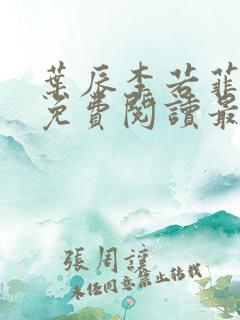 葉辰李若菲
免費閱讀最
張周謹
未任同意禁止转载